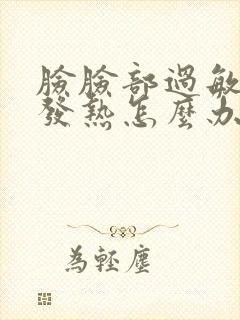 臉臉部過敏
發熱怎麼办
為輕塵